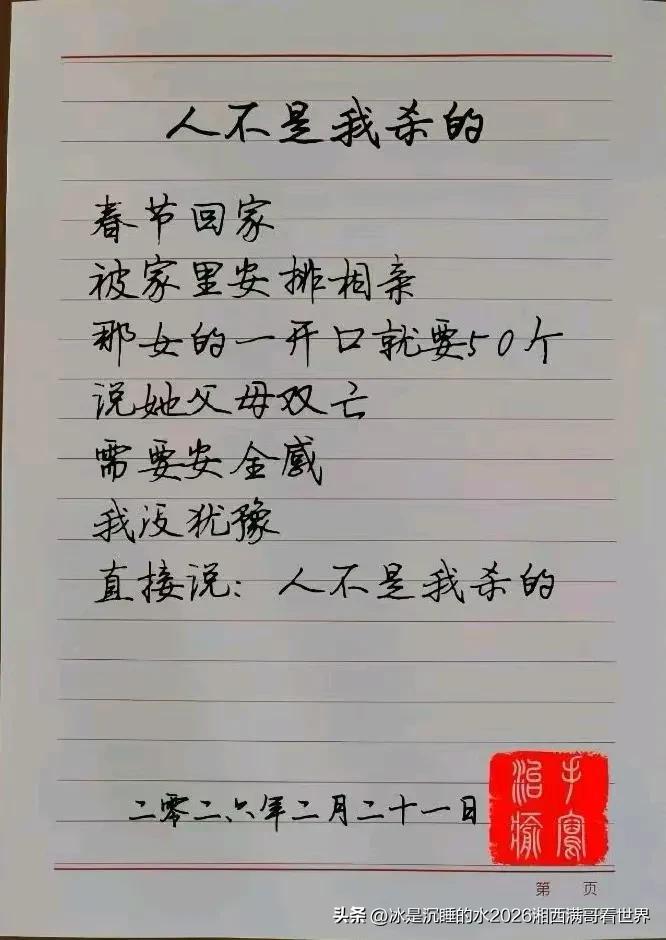 人不是我杀的
春节回家
被家里安排相亲
那女的一开口就要50个
说她父母双亡
需要安全感
我没犹豫
直接说：人不是我杀的
二零二六年二月二十一日
手写治愈
第 页
头条 @冰是沉睡的水2026湘西满哥看世界